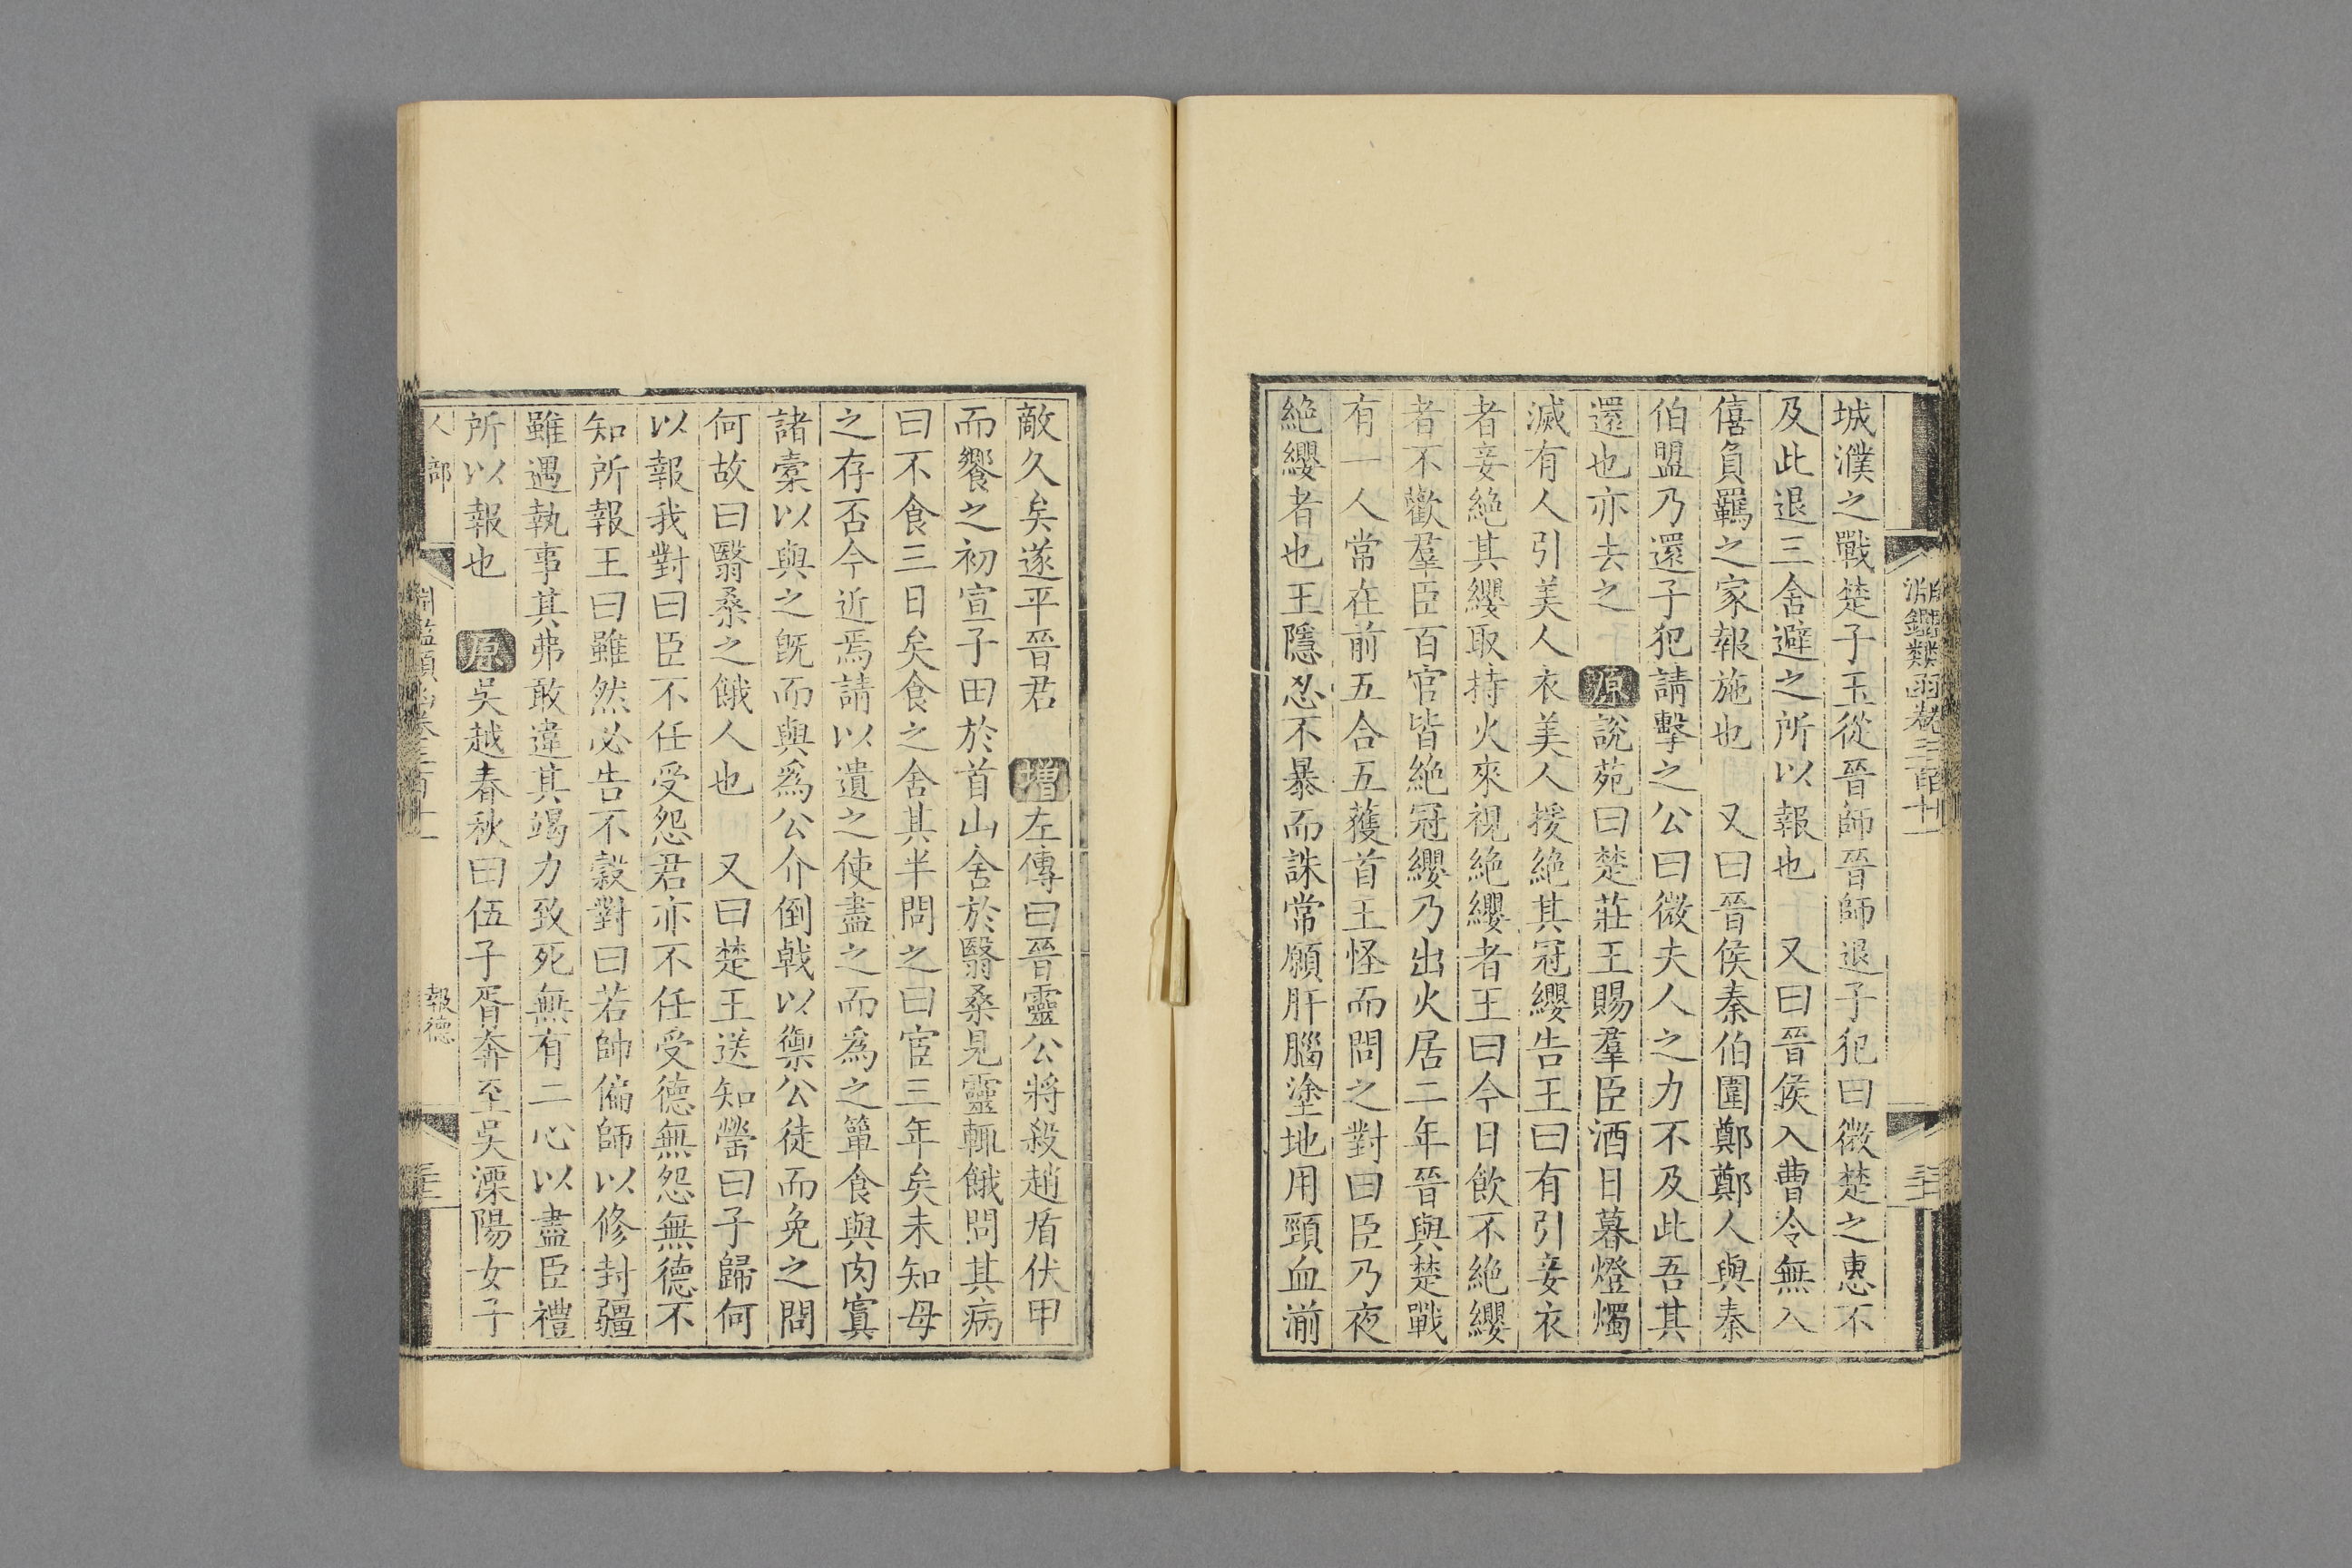 淵鑑類函卷三百十一
城濮之戰楚子玉從晉師晉師退子犯曰微楚之惠不
及此退三舍避之所以報也　又曰晉侯入曹令無入
僖負羈之家報施也　又曰晉侯秦伯圍鄭鄭人與秦
伯盟乃還子犯請擊之公曰微夫人之力不及此吾其
還也亦去之　原說苑曰楚莊王賜羣臣酒日暮燈燭
滅有人引美人衣美人援絶其冠纓告王曰有引妾衣
者妾絶其纓取持火來視絶纓者王曰今日飲不絶纓
者不歡羣臣百官皆絶冠纓乃出火居二年晉與楚戰
有一人常在前五合五獲首王怪而問之對曰臣乃夜
絶纓者也王隱忍不暴而誅常願肝腦塗地用頸血湔
敵久矣遂平晉君　增左傳曰晉靈公將殺趙盾伏甲
而饗之初宣子田於首山舍於翳桑見靈輒餓問其病
曰不食三日矣食之舍其半問之曰宦三年矣未知母
之存否今近焉請以遺之使盡之而爲之簞食與肉寘
諸橐以與之旣而與爲公介倒戟以禦公徒而免之問
何故曰翳桑之餓人也　又曰楚王送知罃曰子歸何
以報我對曰臣不任受怨君亦不任受德無怨無德不
知所報王曰雖然必告不穀對曰若帥偏師以修封疆
雖遇執事其弗敢違其竭力致死無有二心以盡臣禮
所以報也　原吳越春秋曰伍子胥奔至吳溧陽女子
人部
報德